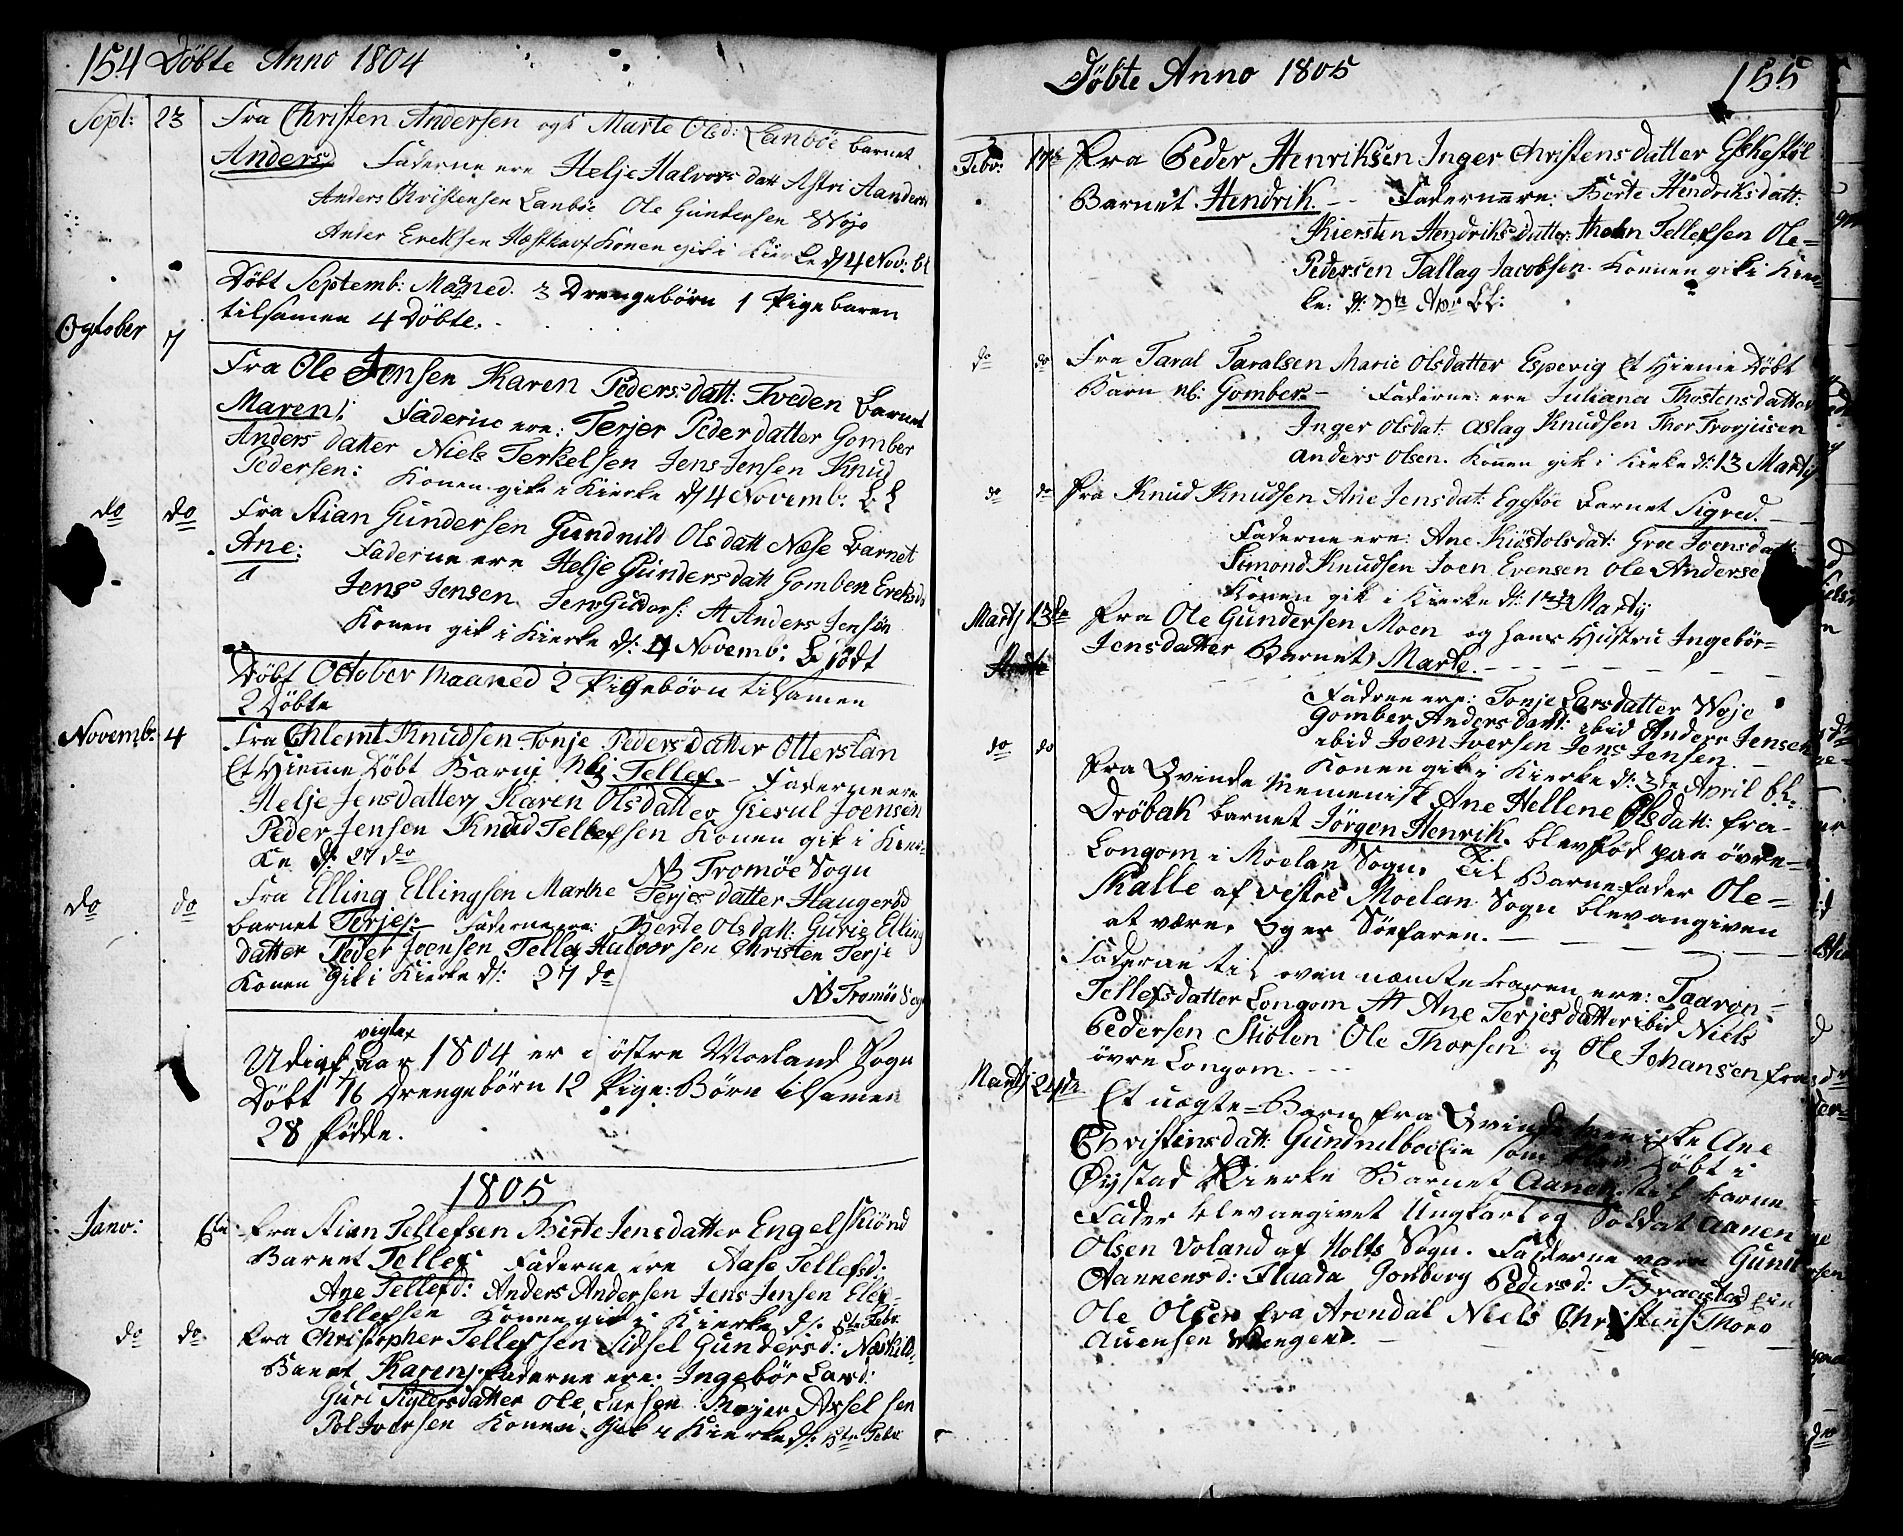 154 Döbte Anno 1804
Sept: 23 Fra Christen Andersen ogs Marte Olsd: Lanböe barnet
Anders Faderne ere Helje Halvors datt Astri Aanders
Anders Christensen Lanböe Ole Gundersen Woje
Ander Ereksen Konen gik i Kierke d/4 Nov:
Döbt Septemb: Maaned. 3 Drengebörn 1 Pigebaren
tilsamen 4 Döbte.
Ogtober 7
Fra Ole Jensen Karen Peders datt: Tveden Barnet
Maren Faderne ere: Terjer Peder datter Gomber
Anders datter Niels Terkelsen Jens Jensen Knud
Pedersen: Konen gik i Kierke d/4 Novemb:
do do Fra Stian Gundersen Gundnild Olsdatt Næse Barnet
Ane: Faderne ere Helje Gunders datt Gomben Ereksd
Jens Jensen Jens Guders: At Anders Jensen
Konen gik i Kierke d/: 4 Novemb:
Döbt October Maaned 2 Pigebörn tilsamen
2 Döbte
Novemb: 4 Fra Chlemt Knudsen Tonje Peders datter Otterslan
Et Hieme Döbt Barn Tellef. Faderne ere
Helje Jensdatter Karen Olsdatter Giesul Joensen
Peder Jensen Knud Tellefsen Konen gik i Kier
ke d/ 27 do
NB Tromöe Sogn
do do Fra Elling Ellingsen Marthe Terjes datter Haugeröd
barnet Terjes: Faderne ere: Berte Olsdatt: Gurie Elling
datter Peder Joensen Tellef Halvorsen Christen Terje
Konen gik i Kierke d/: 27 do
NB Tromöe Sogn
vigtet
Udi Aar 1804 er i östre Moeland Sogn
Döbt 16 Drengebörn 12 Pige: Börn tilsamen
28 födde.
1805
Janv: 6te Fra Stian Tellefsen Berte Jensdatter Engelskiönd
Barnet Tellef Faderne ere Aase Tellefsd:
Ane Tellefd: Anders Andersen Jens Jensen Elef
Tellefsen Konen gik i Kierke d/: Febr.
do do Fra Christopher Tellefsen Sidsel Gundersd: Naskild
Barnet Karen Faderne ere: Ingebör Larsd:
Guri Siglersdatter Ole Larsen Axselsen
Joersen Konen gik i Kierke d/: Febr
Döbte Anno 1805 155
Febr: 17 Fra Peder Henriksen Inger Christens datter Eskestöl
Barnet Hendrik. Faderne ere: Berte Hendriksdatt:
Kiersten Hendriks datter Tellefsen Ole=
Pedersen Tallag Jacobsen. Konnen gik i Kier
ke: d: 3de Apr
do do Fra Taral Taralsen Marie Olsdatter Espevig Et Hieme Döbt
Barn nb: Gomber. Faderne: ere Juliana Thostensdatter
Inger Olsdat: Aslag Knudsen Thor Troyiusen
Anders Olsen. Konen gik i Kierke d/: 13 Martij
do do Fra Knud Knudsen Ane Jensdat: Egeföe Barnet Sigred.
Faderne ere: Ane Kiöstolsdat: Groe Joensdatt:
Simond Knudsen Joen Evensen Ole Anderse
Konen gik i Kierke d/: 13de Martij
Martj 13te Fra Ole Gundersen Moen og hans Hustru Ingebör=
Jensdatter Barnet Marte.
Fadrene ere: Tonje Larsdatter Woje
Gomber Anders datt: ibid Anders Jensen
ibid Joen Joersen Jens Jensen.
Konen gik i Kierke d: 3de April
do do Fra Qvinde Menenisk Ane Hellene Olsdatt: fra
Dröbak barnet Jörgen Henrik. blev föd paa övre=
Longom i Moelan Sogn. Til Barne-fader Ole=
Kalle af vestre Moelan Sogn blev angiven
at være, og er Söefaren.
Faderne til oven nemte baren ere: Taaron
Tellefsdatter Longom At Ane Terjesdatter ibid Niels
Pedersen Skiolen Ole Thorsen og Ole Johansen fra
övre Longom.
Martj 24de Et uægte=Barn fra Qvinde Menniske Ane
Christensdatt: som blev Döbt i
Öystad Kierke Barnet Aanen. til barne
Fader blev angivet Ungkarl og Soldat Aanen
Olsen Voland af Holts Sogn. Faderne vare Gun
Aannensd: Flaada Gonberg Pedersd: Braastad
Ole Olsen fra Arendal Niels Christens: Thoro
Auensen Wængene.